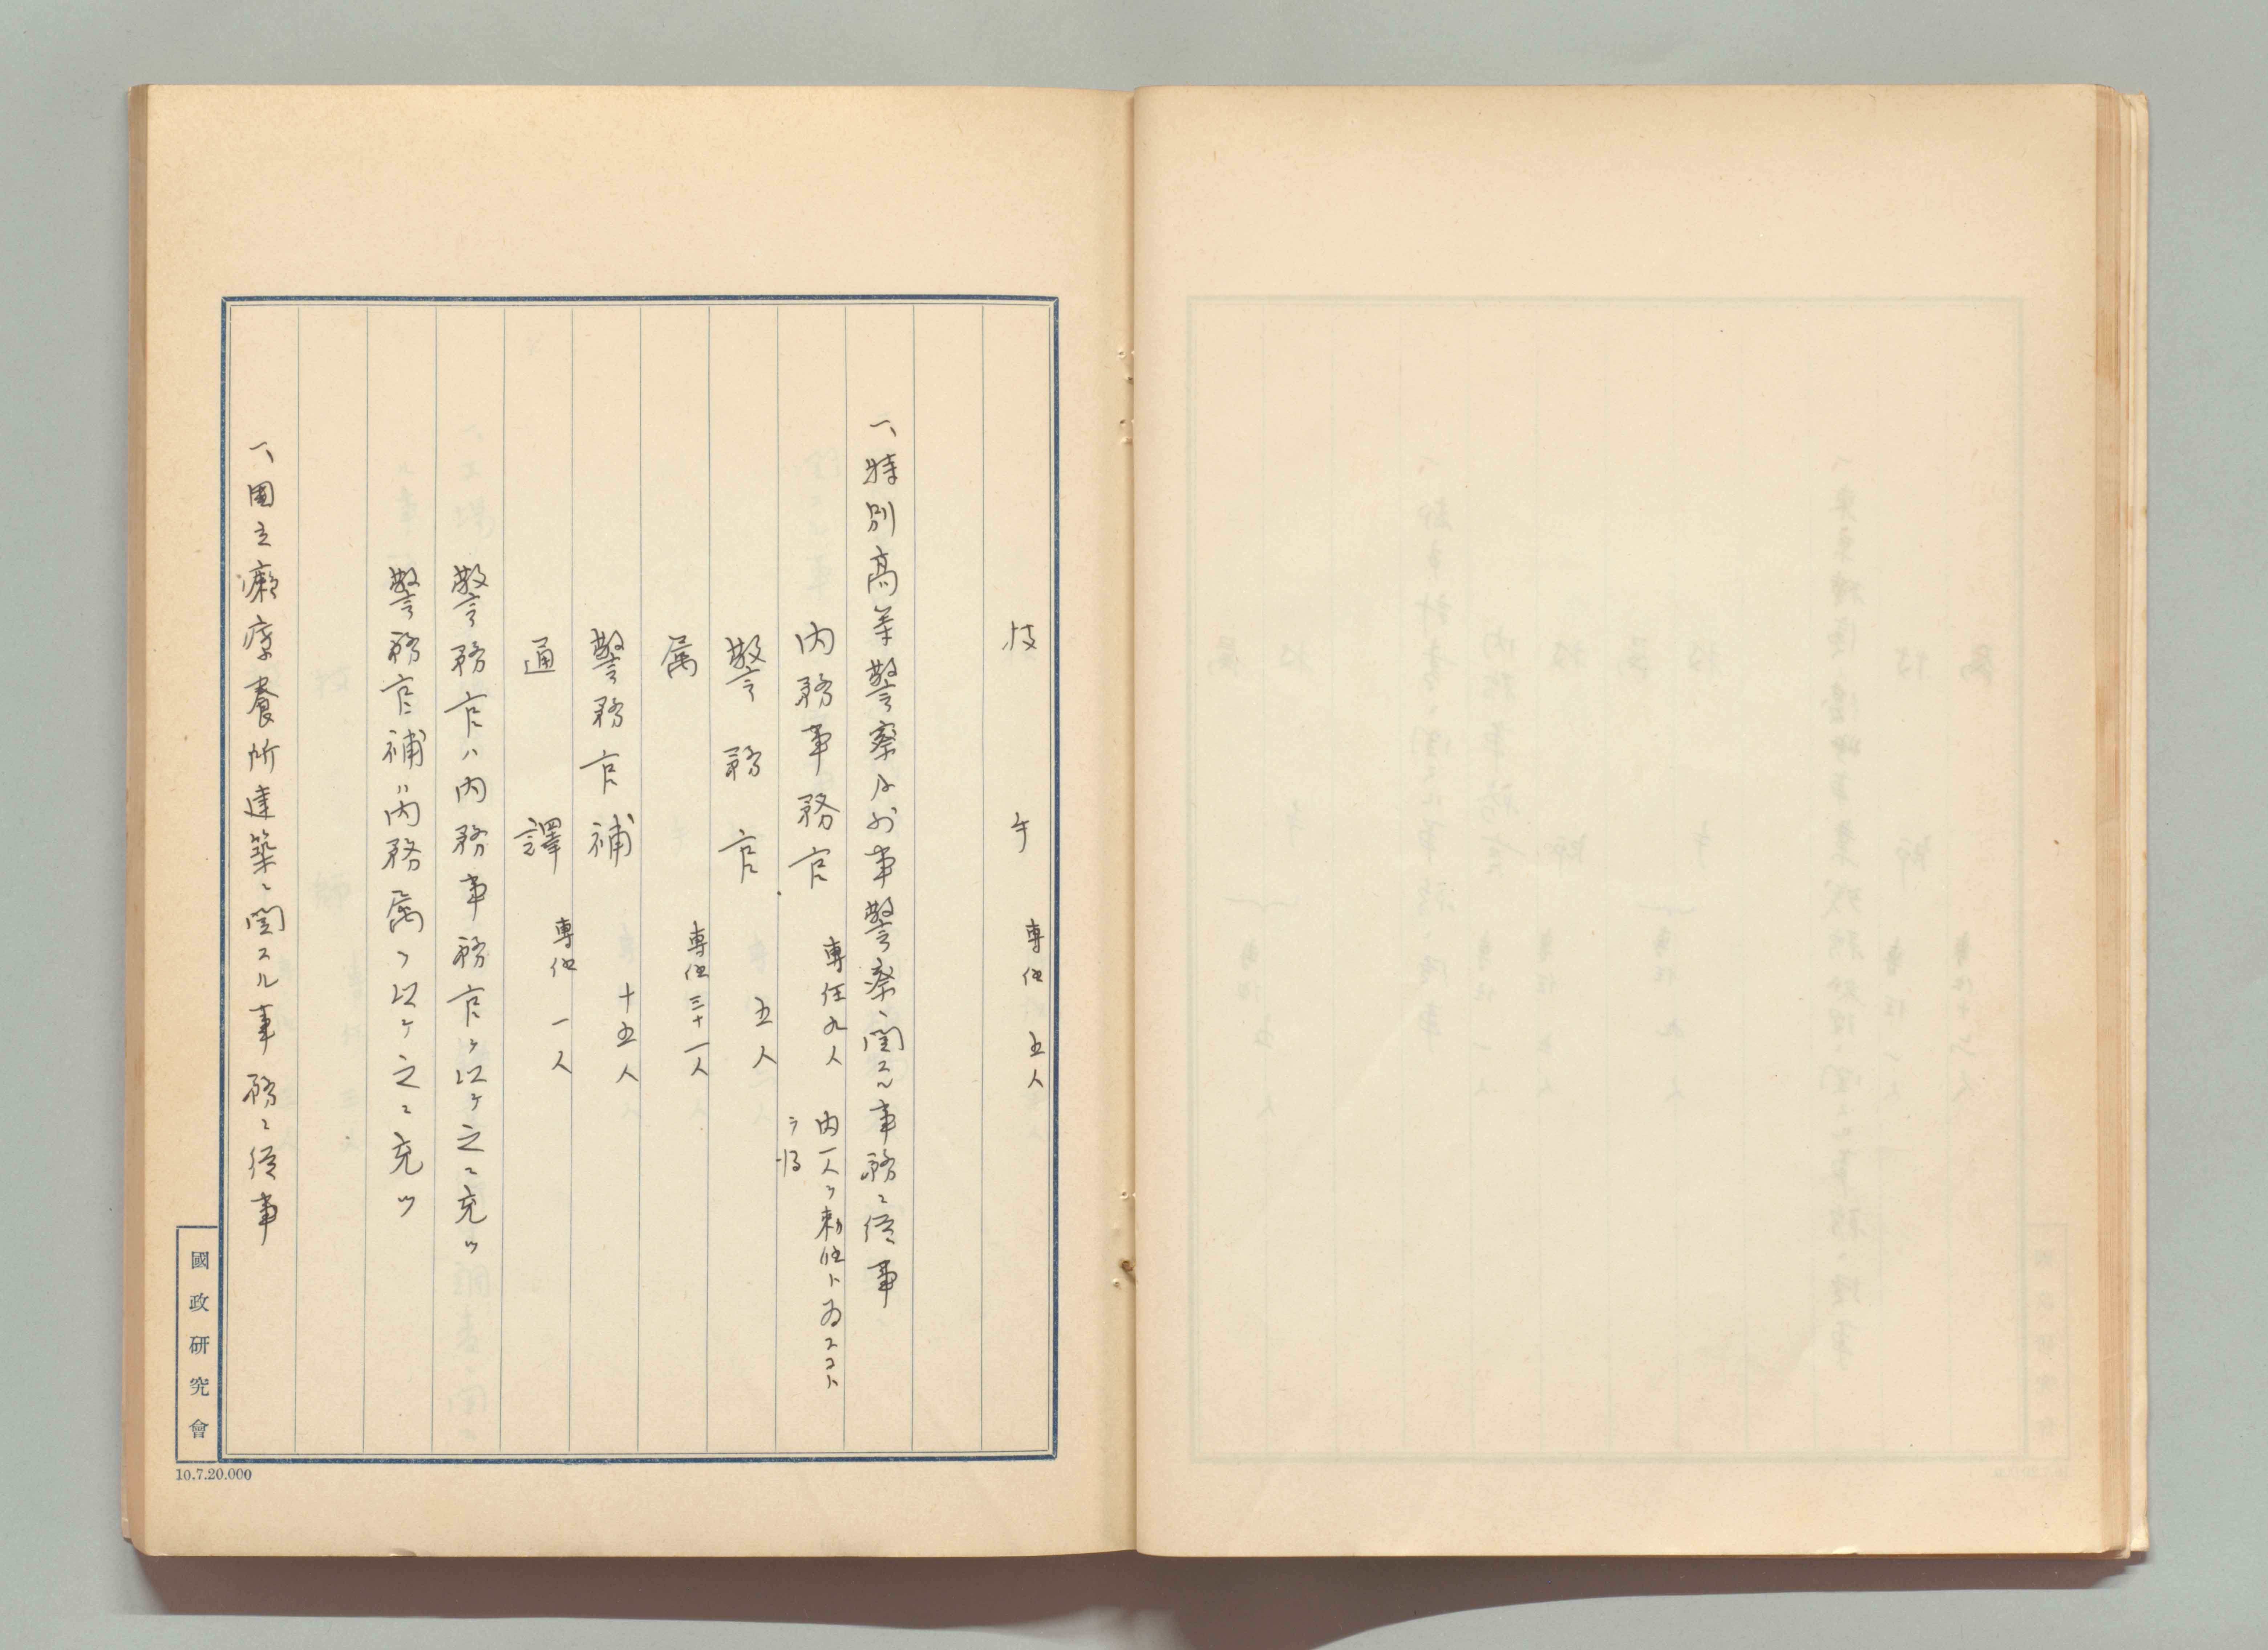 技手 専任 五人
一、特別高等警察及外事警察ニ関スル事務ニ従事
内務事務官 専任九人 内一人ヲ勅任ト為スコト
ヲ得
警務官 五人
属 専任三十一人
警務官補 十五人
通譯 専任 一人
警務官ハ内務事務官ヲ以テ之ニ充ツ
警務官補ハ内務属ヲ以テ之ニ充ツ
一、國立癩療養所建築ニ関スル事務ニ従事
國政研究會
10.7.20.000